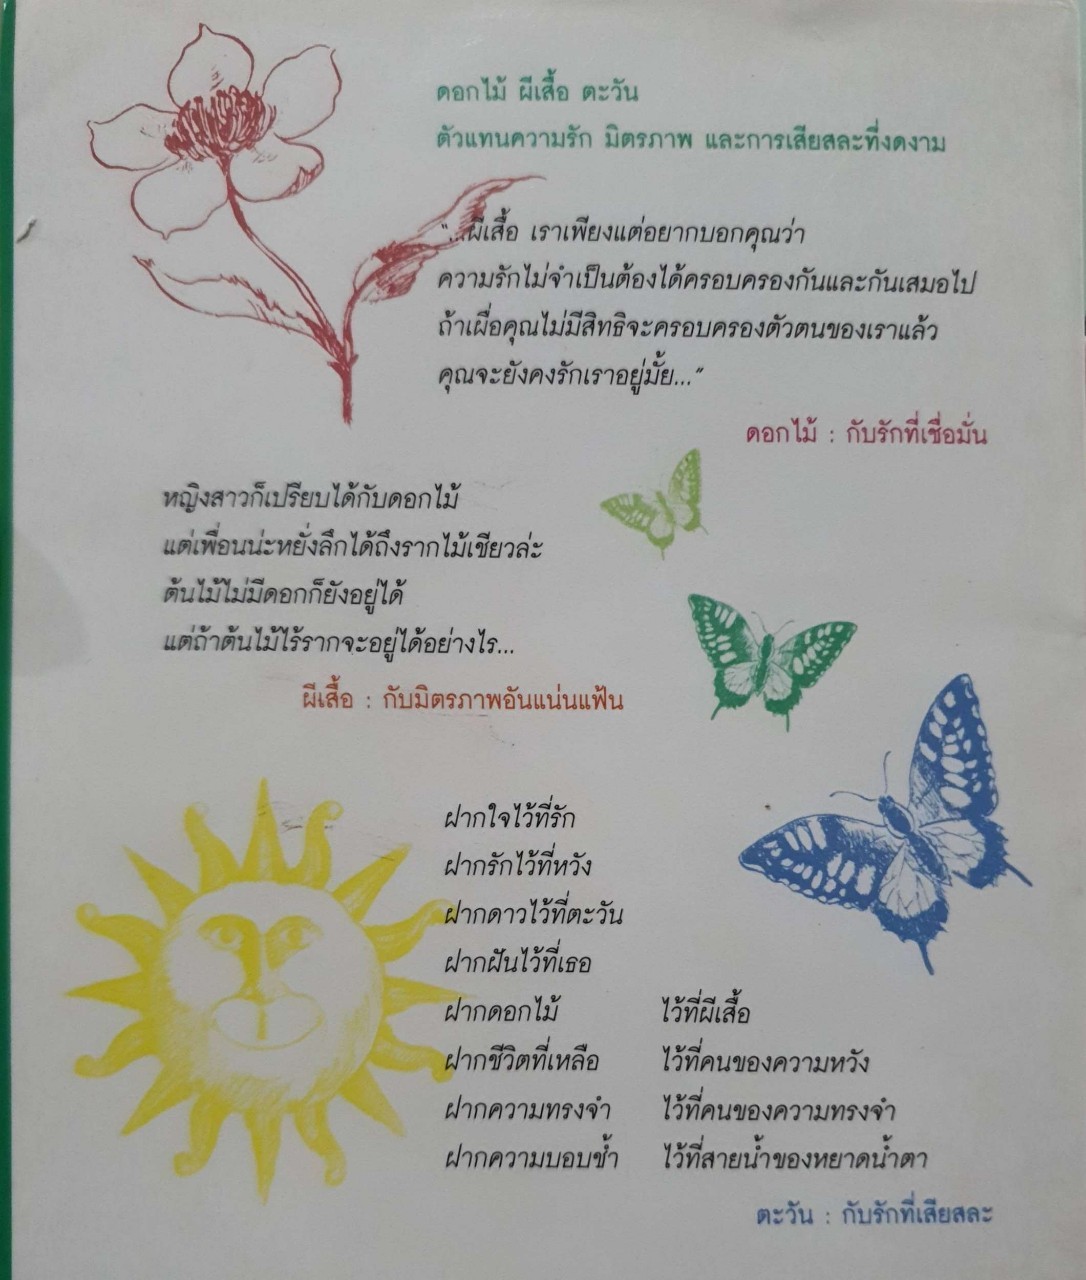 ดอกไม้ ผีเสื้อ ตะวัน
ตัวแทนความรัก มิตรภาพ และการเสียสละที่งดงาม
"...ผีเสื้อ เราเพียงแต่อยากบอกคุณว่า
ความรักไม่จำเป็นต้องได้ครอบครองกันและกันเสมอไป
ถ้าเผื่อคุณไม่มีสิทธิจะครอบครองตัวตนของเราแล้ว
คุณจะยังคงรักเราอยู่มั้ย..."
ดอกไม้ : กับรักที่เชื่อมั่น
หญิงสาวก็เปรียบได้กับดอกไม้
แต่เพื่อนน่ะหยั่งลึกได้ถึงรากไม้เชียวล่ะ
ต้นไม้ไม่มีดอกก็ยังอยู่ได้
แต่ถ้าต้นไม้ไร้รากจะอยู่ได้อย่างไร...
ผีเสื้อ : กับมิตรภาพอันแน่นแฟ้น
ฝากใจไว้ที่รัก
ฝากรักไว้ที่หวัง
ฝากดาวไว้ที่ตะวัน
ฝากฝันไว้ที่เธอ
ฝากดอกไม้ ไว้ที่ผีเสื้อ
ฝากชีวิตที่เหลือ ไว้ที่คนของความหวัง
ฝากความทรงจำ ไว้ที่คนของความทรงจำ
ฝากความบอบช้ำ ไว้ที่สายน้ำของหยาดน้ำตา
ตะวัน : กับรักที่เสียสละ